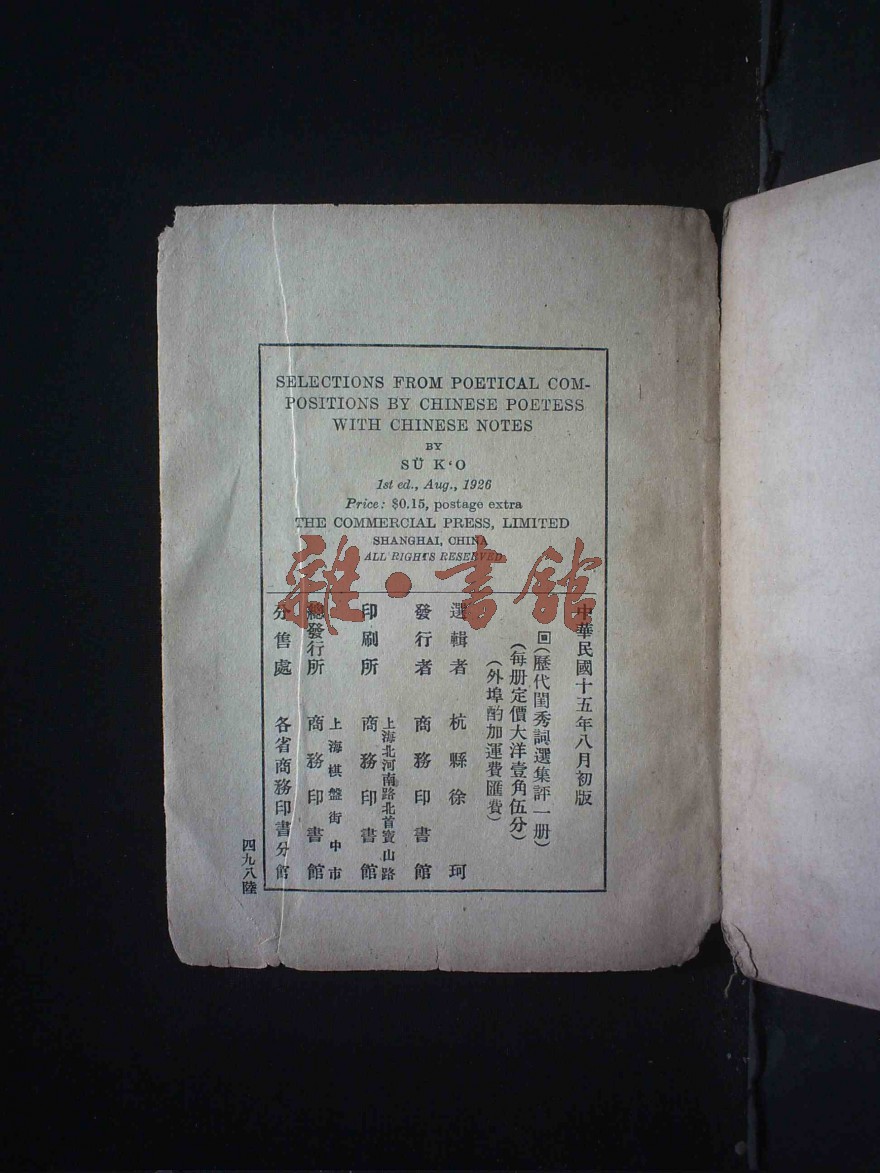 SELECTIONS FROM POETICAL COM-
POSITIONS BY CHINESE POETESS
WITH CHINESE NOTES
BY
SÜ K‘O
1st ed., Aug., 1926
Price: $0.15, postage extra
THE COMMERCIAL PRESS, LIMITED
SHANGHAI, CHINA
ALL RIGHTS RESERVED
雜·書館
中華民國十五年八月初版
回(歷代閨秀詞選集評一册)
(每册定價大洋壹角伍分)
(外埠酌加運費匯費)
選輯者 杭縣徐珂
發行者 商務印書館
上海北河南路北首寶山路
印刷所 商務印書館
上海棋盤街中市
總發行所 商務印書館
分售處 各省商務印書分館
四九八陸